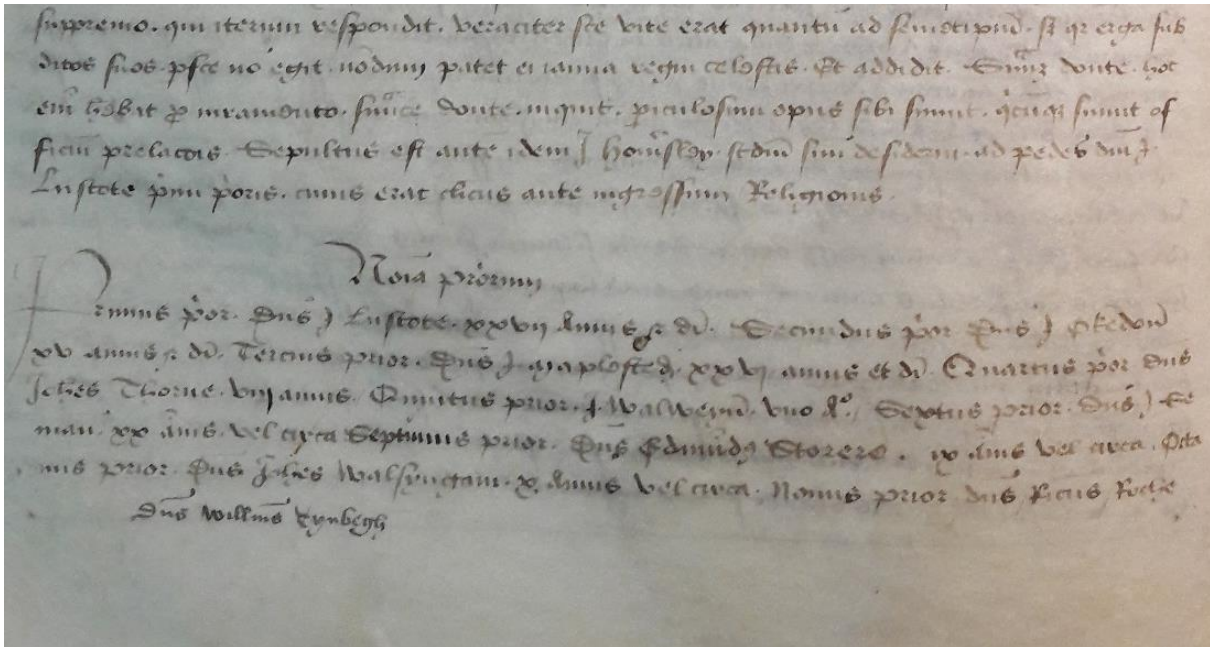 suppremo. qui iterum respondit. veraciter sce vite erat quantū ad semetipm̄. sꝫ qr erga sub
ditos suos. pfce nō egit. nōdum patet ei ianua regni celestis. Et addidit. donte. hoc
em̄ hēbat ꝓ iuramento. donte. inquit. ꝑiculosum opus sibi sumit. qͥcūqꝫ sumit of
ficiū prelacōis. Sepultus est autē idem J scdm̄ suū desideriū. ad pedes dm̄ J.
Luscote pͥmi pͥoris. cuius erat clicus ante ingressum Religionis.
Noīa priorum
Primus pͥor. Dn̄s J Luscote. xxvij Annis ⁊ di. Secundus pͥor Dn̄s J Okedun̄
xv annis ⁊ di. Tercius prior. Dn̄s J. maplosted. xxvj annis et di. Quartus pͥor dn̄s
Joh̄es Thorne. viij annis. Quintus prior. J. Walweyn̄. vno Aº. Sextus prior. Dn̄s J Se
man. xx ān̄is. vel circa Septimus prior. Dn̄s Edmūdꝰ Storere. ix ān̄is vel circa. Octa
uus prior. Dn̄s Joh̄es Walsyngam. x. Annis vel circa. Nonus prior dn̄s Ricūs Roche
Dn̄s Willm̄s Tynbegh